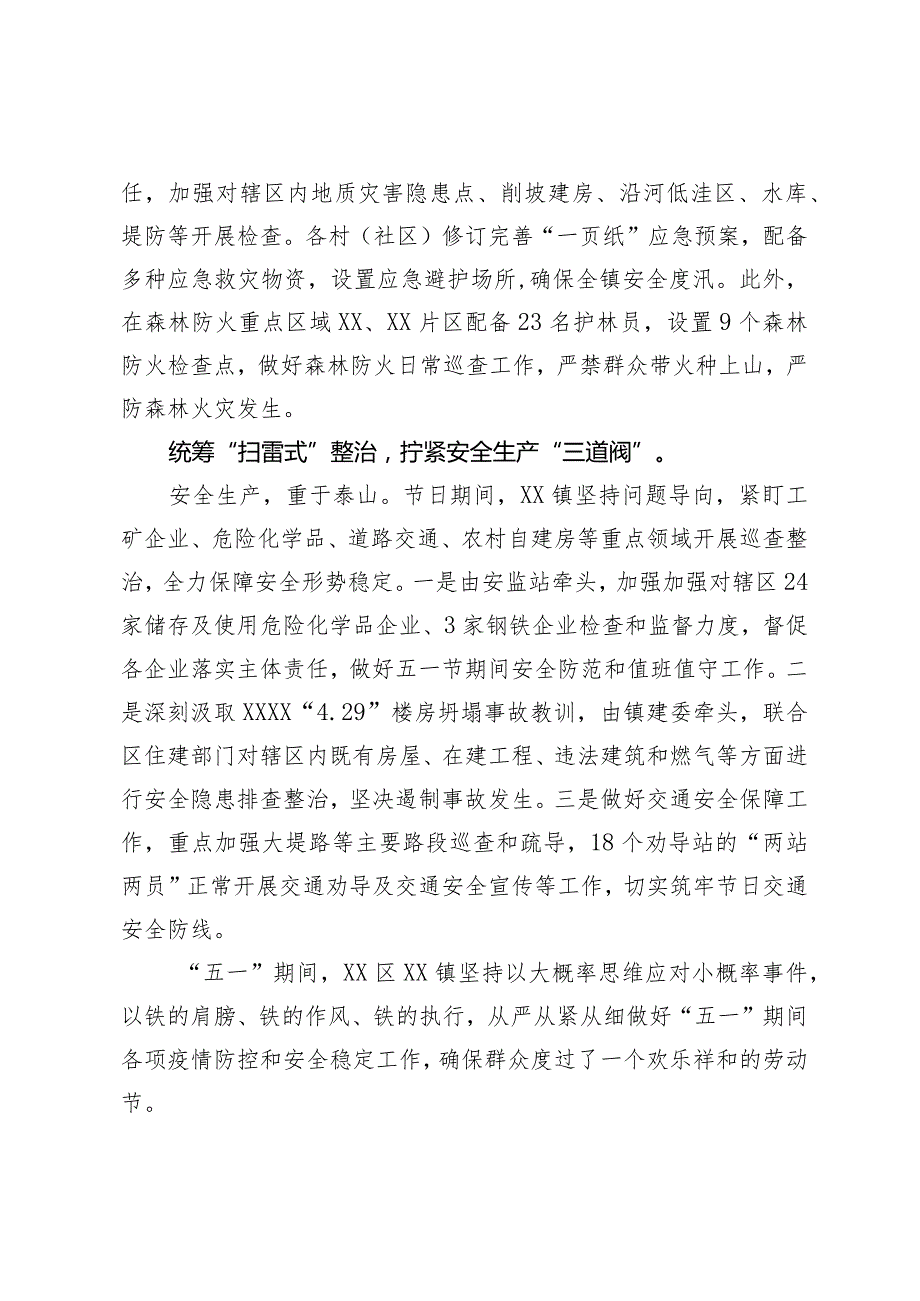 任，加强对辖区内地质灾害隐患点、削坡建房、沿河低洼区、水库、
堤防等开展检查。各村（社区）修订完善“一页纸”应急预案，配备
多种应急救灾物资，设置应急避护场所,确保全镇安全度汛。此外，
在森林防火重点区域 XX、XX 片区配备 23 名护林员，设置 9 个森林
防火检查点，做好森林防火日常巡查工作，严禁群众带火种上山，严
防森林火灾发生。
统筹“扫雷式”整治，拧紧安全生产“三道阀”。
安全生产，重于泰山。节日期间，XX 镇坚持问题导向，紧盯工
矿企业、危险化学品、道路交通、农村自建房等重点领域开展巡查整
治，全力保障安全形势稳定。一是由安监站牵头，加强加强对辖区 24
家储存及使用危险化学品企业、3 家钢铁企业检查和监督力度，督促
各企业落实主体责任，做好五一节期间安全防范和值班值守工作。二
是深刻汲取 XXXX“4.29”楼房坍塌事故教训，由镇建委牵头，联合
区住建部门对辖区内既有房屋、在建工程、违法建筑和燃气等方面进
行安全隐患排查整治，坚决遏制事故发生。三是做好交通安全保障工
作，重点加强大堤路等主要路段巡查和疏导，18 个劝导站的“两站
两员”正常开展交通劝导及交通安全宣传等工作，切实筑牢节日交通
安全防线。
“五一”期间，XX 区 XX 镇坚持以大概率思维应对小概率事件，
以铁的肩膀、铁的作风、铁的执行，从严从紧从细做好“五一”期间
各项疫情防控和安全稳定工作，确保群众度过了一个欢乐祥和的劳动
节。